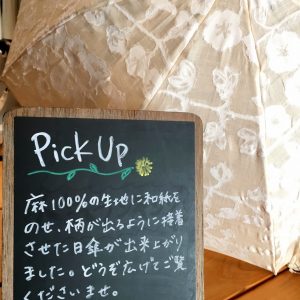 Pick Up
麻100%の生地に和紙を
のせ、柄が出るように接着
させた日傘が出来上がり
ました。どうぞ広げてご覧
くださいませ。